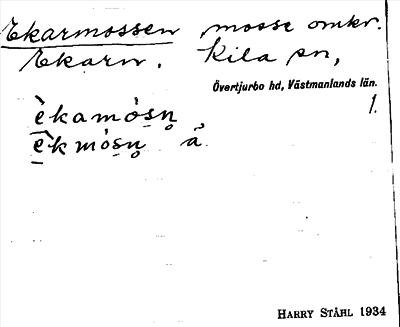 Ekarmossen mosse omkr.
Ekarn. Kila sn,
Övertjurbo hd, Västmanlands län.
1.
èkamósn̥
èkmósn̥ å̀
HARRY STÅHL 1934